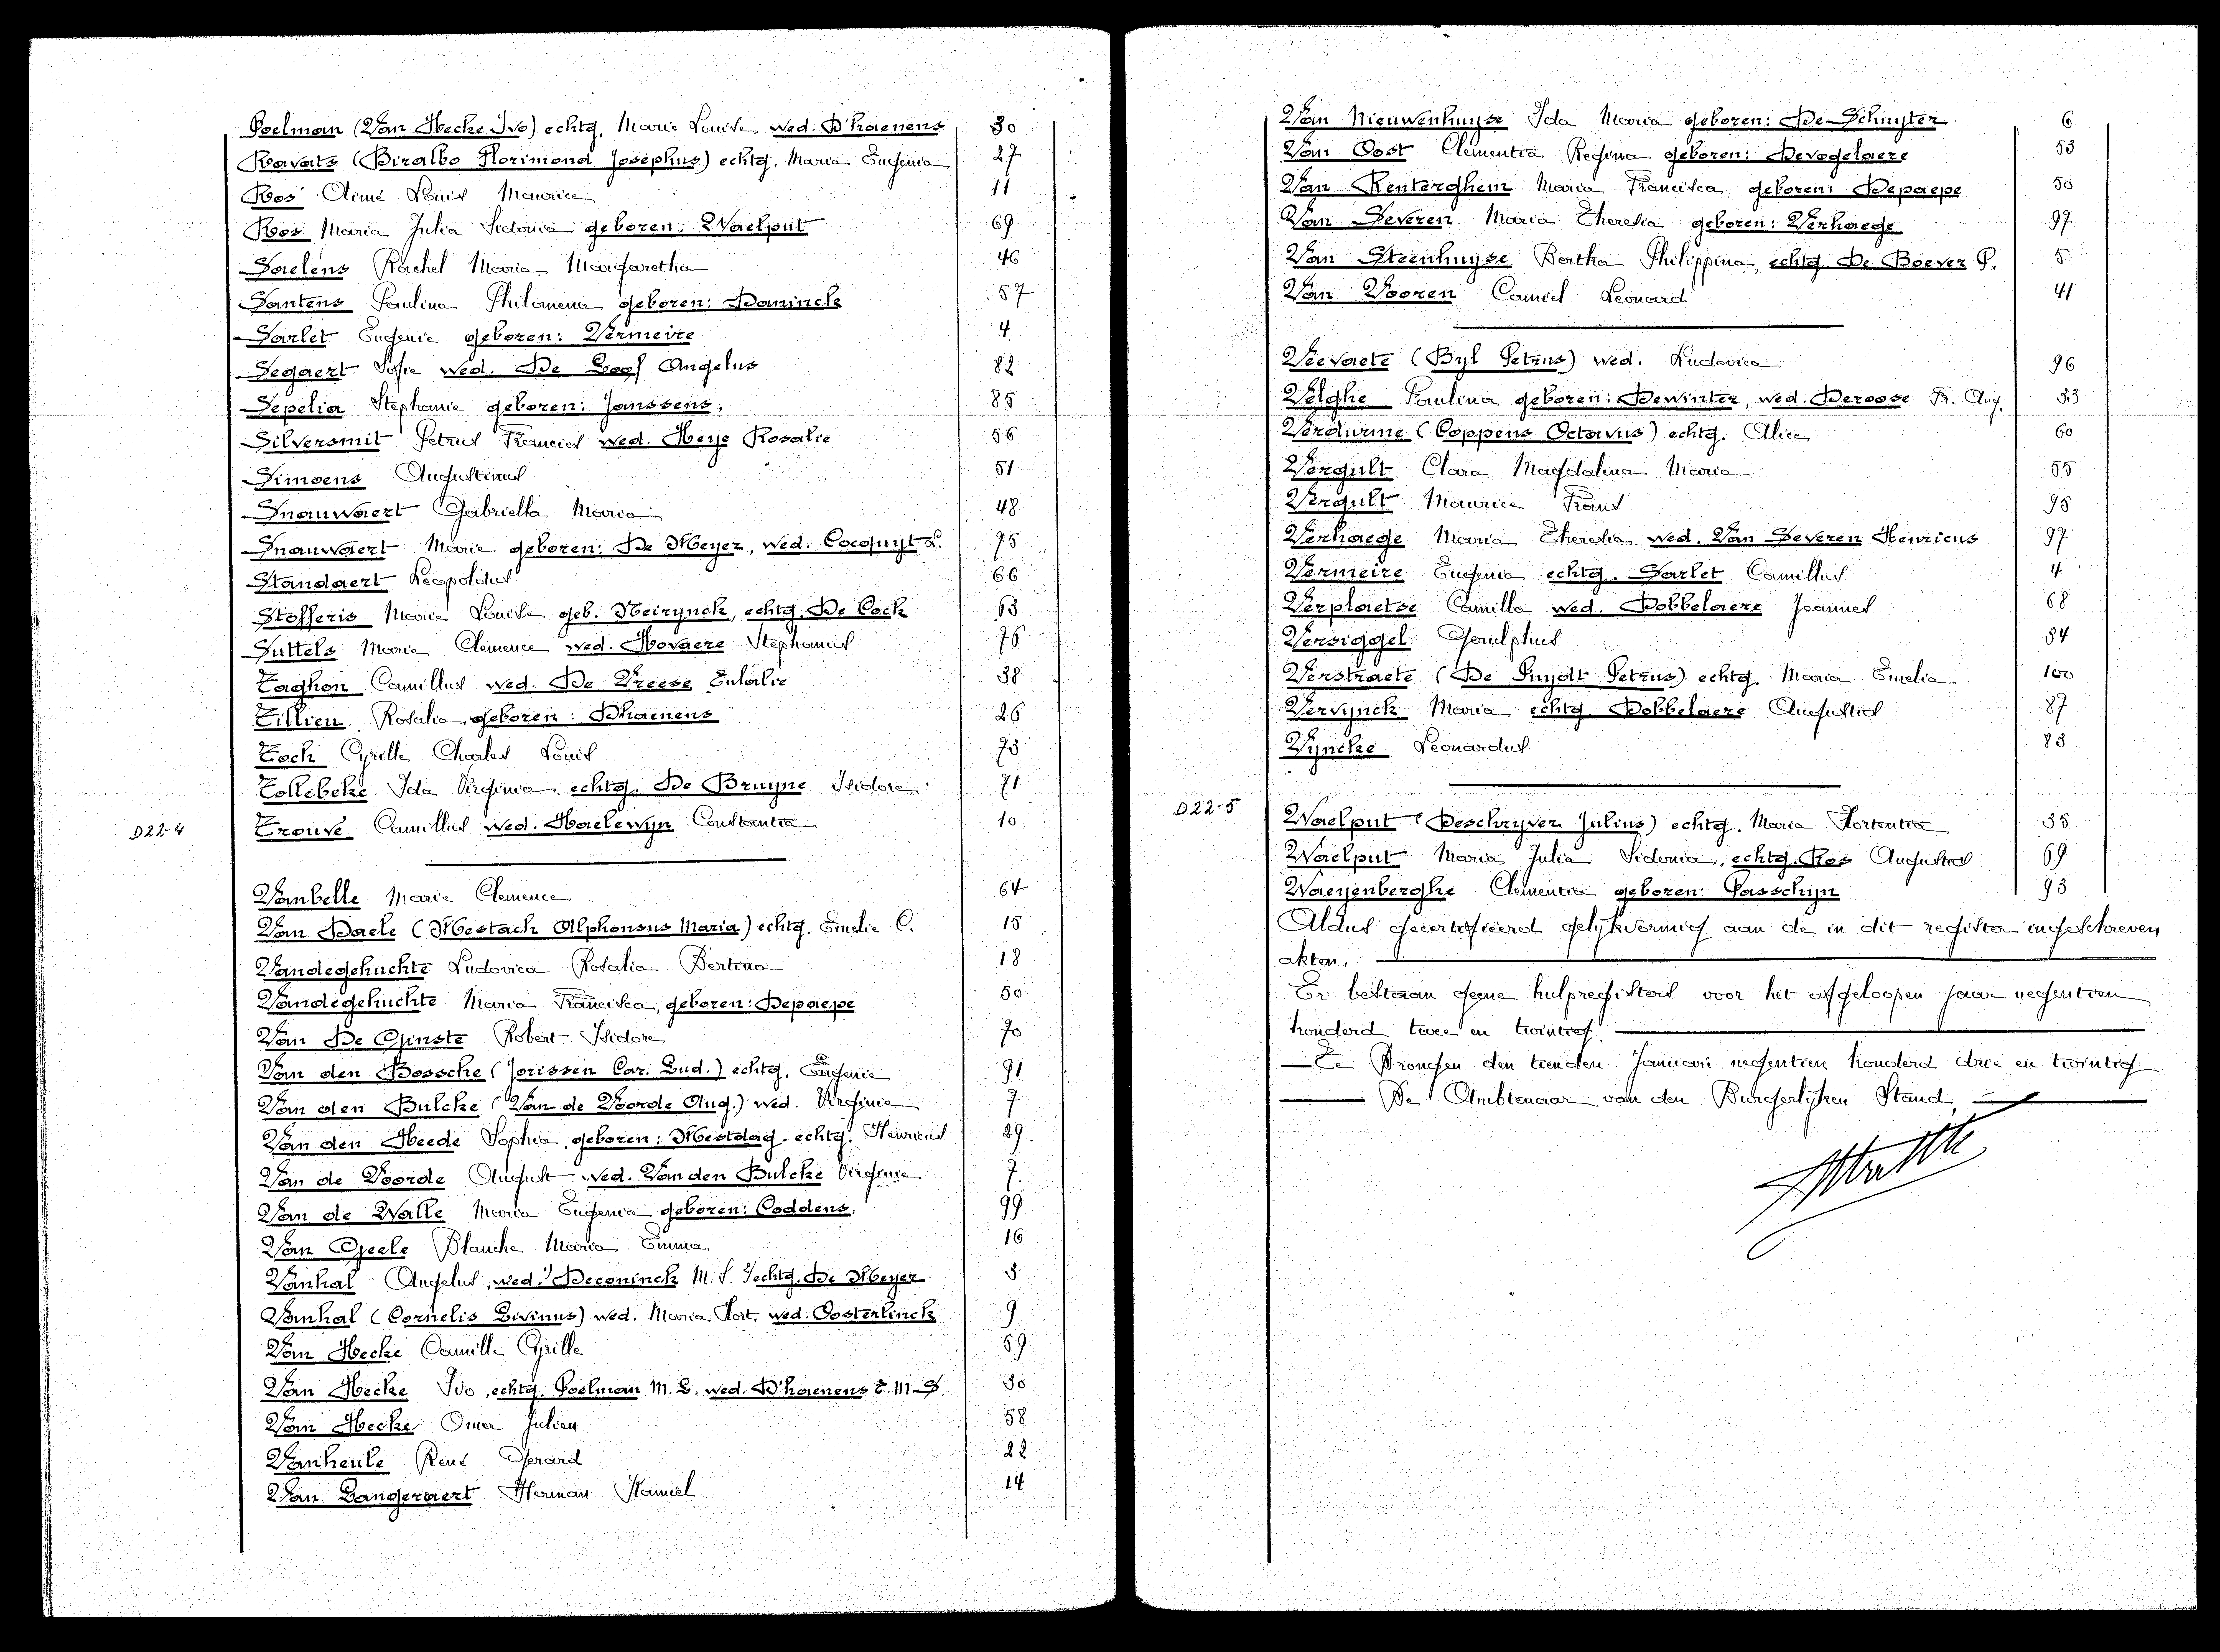 Poelman (Van Hecke Ivo) echtg. Marie Louise wed. D'haenens 30
Ravats (Biralbo Florimond Josephus) echtg. Maria Eugenia 27
Ros Aimé Louis Maurice 11
Ros Maria Julia Sidonia geboren: Waelput 69
Saelens Rachel Maria Margaretha 46
Santens Paulina Philomena geboren: Daninck 57
Sarlet Eugenie geboren: Vermeire 4
Segaert Sofie wed. De Loof Angelus 82
Sepelia Stephanie geboren: Janssens, 85
Silversmit Petrus Francies wed. Heye Rosalie 56
Simoens Augustinus 51
Snauwaert Gabriella Maria 48
Snauwaert Marie geboren: De Meyer, wed. Cocquyt L. 75
Standaert Leopoldus 66
Stofferis Maria Louisa geb. Neirynck, echtg. De Cock 63
Suttels Maria Clemence wed. Hovaere Stephanus 76
Taghon Camillus wed. De Vreese Eulalie 38
Tillieu Rosalia, geboren: Dhaenens 26
Toch Cyrille Charles Louis 73
Tollebeke Ida Virginia echtg. De Bruyne Isidore 71
D22-4 Trouvé Camillus wed. Haelewyn Constantia 10
Vanbelle Marie Clemence 64
Van Daele (Mestach Alphonsus Maria) echtg. Emelie C. 15
Vandegehuchte Ludovica Rosalia Bertina 18
Vandegehuchte Maria Francisca, geboren: Depaepe 50
Van De Ginste Robert Isidore 70
Van den Bossche (Jorissen Car. Lud.) echtg. Eugenie 91
Van den Bulcke (Van de Voorde Aug.) wed. Virginie 7
Van den Heede Sophia, geboren: Mestdag - echtg. Henricus 29.
Van de Voorde August wed. Van den Bulcke Virginie 7
Van de Walle Maria Eugenia geboren: Coddens, 99
Van Geele Blanche Maria Emma 16
Vanhal Angelus, wed. Deconinck M. S. echtg. De Meyer 3
Vanhal (Cornelis Livinus) wed. Maria Hort. wed. Oosterlinck 9
Van Hecke Camille Cyrille 59
Van Hecke Ivo, echtg. Poelman M. L. wed. D'haenens E. M. S. 30
Van Hecke Omer Julien 58
Vanheule René Gerard 22
Van Langeraert Herman Kamiel 14
Van Nieuwenhuyse Ida Maria geboren: De Schuyter 6
Van Oost Clementia Regina geboren: Devogelaere 53
Van Renterghem Maria Francisca geboren: Depaepe 50
Van Severen Maria Theresia geboren: Verhaege 97
Van Steenhuyse Bertha Philippina, echtg. De Boever P. 5
Van Vooren Camiel Leonard 41
Veevaete (Byl Petrus) wed. Ludovica 96
Velghe Paulina geboren: Dewinter, wed. Deroose Fr. Aug. 33
Verdurme (Coppens Octavus) echtg. Alice 60
Vergult Clara Magdalena Maria 55
Vergult Maurice Frans 95
Verhaege Maria Theresia wed. Van Severen Henricus 97
Vermeire Eugenia echtg. Sarlet Camillus 4
Verplaetse Camilla wed. Dobbelaere Joannes 68
Versiggel Goulphus 34
Verstraete (De Puydt Petrus) echtg. Maria Emelia 100
Vervynck Maria echtg. Dobbelaere Augustus 87
Vyncke Leonardus 83
D22-5 Waelput (Deschryver Julius) echtg. Maria Hortentia 35
Waelput Maria Julia Sidonia, echtg. Ros Augustus 69
Waeyenberghe Clementia geboren: Passchyn 93
Aldus gecertifiëerd gelykvormig aan de in dit register ingeschreven
akten.
Er bestaan geene hulpregisters voor het afgeloopen jaar negentien
honderd twee en twintig.
Te Drongen den tienden Januari negentien honderd drie en twintig
De Ambtenaar van den Burgerlyken Stand,